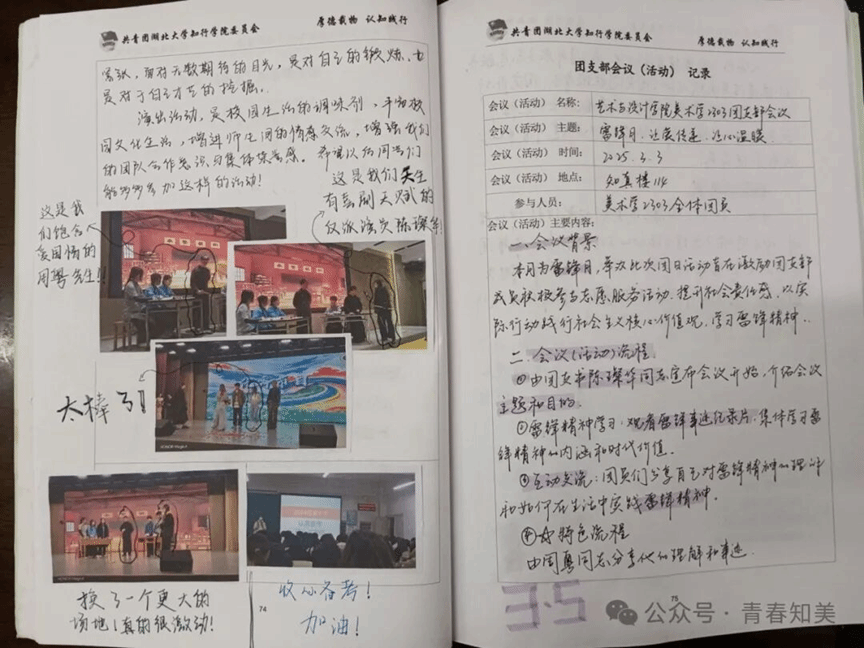 共青团湖北大学知行学院委员会
厚德载物 认知践行
紧张,面对无数期待的目光,是对自己的锻炼,也
是对于自己才艺的挖掘。
演出活动,是校园生活的调味剂,丰富校
园文化生活,增进师生间的情感交流,增强我们
的团队合作意识与集体荣誉感。希望以后同学们
能多多参加这样的活动!
这是我们天生
有喜剧天赋的
这是我
们饱含
爱国情的
周粤先生!!
太棒了!!
换了一个更大的
场地!真的很激动!
收心备考!
加油!
74
共青团湖北大学知行学院委员会
厚德载物 认知践行
团支部会议(活动) 记录
会议(活动) 名称: 艺术与设计学院美术学2303团支部会议
会议(活动) 主题: 雷锋月,让爱传递,让心温暖
会议(活动) 时间: 2025.3.3
会议(活动) 地点: 知真楼114
参与人员: 美术学2303全体团员
会议(活动)主要内容:
一、会议背景
本月为雷锋月,举办此次团日活动旨在激励团支部
成员积极参与志愿服务活动,提升社会责任感,以实
际行动践行社会主义核心价值观,学习雷锋精神。
二、会议(活动)流程
①由团支书陈璨华同志宣布会议开始,介绍会议
主题和目的。
②雷锋精神学习:观看雷锋事迹纪录片,集体学习雷
锋精神的内涵和时代价值。
③互动交流:团员们分享自己对雷锋精神的理解
和如何在生活中实践雷锋精神。
④特色流程
同志分享他的理解和事迹
3.5
75
公众号·青春知美